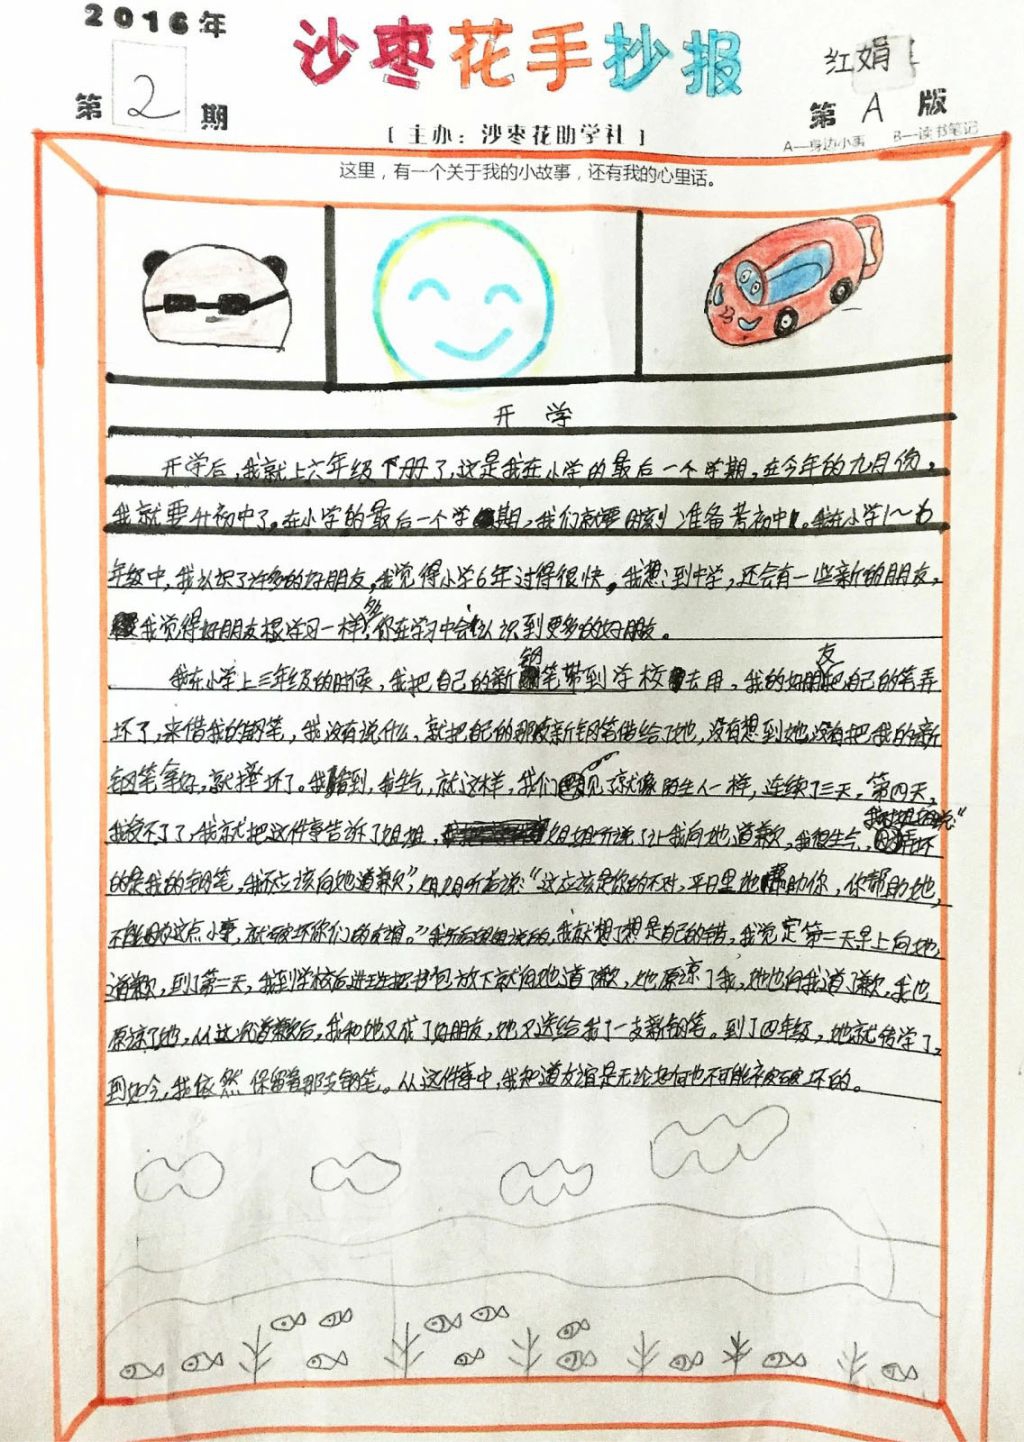 2016年
沙枣花手抄报
红娟
第2期
第A版
[主办：沙枣花助学社]
A—身边小事 B—读书笔记
这里，有一个关于我的小故事，还有我的心里话。
开学
开学后，我就上六年级下册了，这是我在小学的最后一个学期，在今年的九月份，
我就要升初中了。在小学的最后一个学期，我们就要时刻准备考初中。我在小学1～6
年级中，我认识了许多的好朋友，我觉得小学6年过得很快，我想到中学，还会有一些新的朋友，
我觉得好朋友跟学习一样，你在学习中会认识到更多的好朋友。
我在小学上三年级的时候，我把自己的新钢笔带到学校去用，我的好朋友把自己的笔弄
坏了，来借我的钢笔，我没有说什么，就把自己的那支新钢笔借给了她，没有想到她没有把我的新
钢笔拿好，就摔坏了。我看到，我生气，就这样，我们见了就像陌生人一样，连续了三天，第四天，
我受不了了，我就把这件事告诉了姐姐，姐姐听说了让我向她道歉，我很生气，我对姐姐说：“弄坏
的是我的钢笔，我不应该向她道歉”，姐姐听后说：“这应该是你的不对，平日里她帮助你，你帮助她，
不能因为这点小事，就破坏你们的友谊。”我听后姐姐说的，我就想了想是自己的错，我觉定第二天早上向她
道歉，到了第二天，我到学校后进班把书包放下就向她道了歉，她原谅了我，她也向我道了歉，我也
原谅了她，从这次道歉后，我和她又成了好朋友，她又送给我了一支新钢笔。到了四年级，她就转学了，
到如今，我依然保留着那支钢笔。从这件事中，我知道友谊是无论如何也不可能被破坏的。